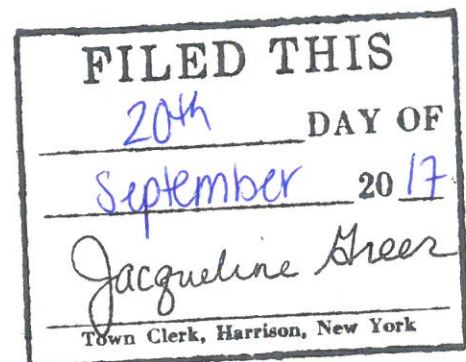 FILED THIS
20th DAY OF
September 20 17
Jacqueline Greer
Town Clerk, Harrison, New York